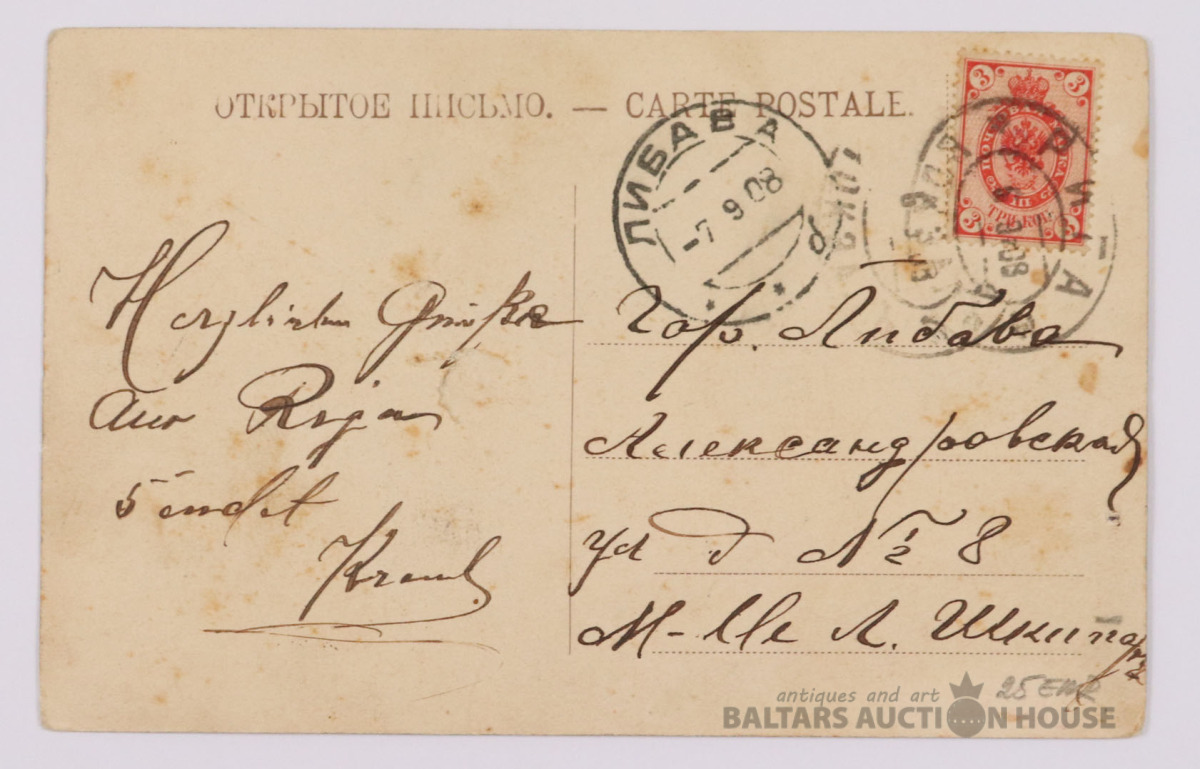 ОТКРЫТОЕ ПИСЬМО. — CARTE POSTALE.
ЛИБАВА
-7 9 08
РИГА
3 3
ПОЧ МАРКА
ТРИ КОП
3 3
Herzlichen Grüße
aus Riga
sendet
Гор. Либава
Александровская
ул д № 8
M-lle Л. Шкипар
25 EMR
antiques and art
BALTARS AUCTION HOUSE